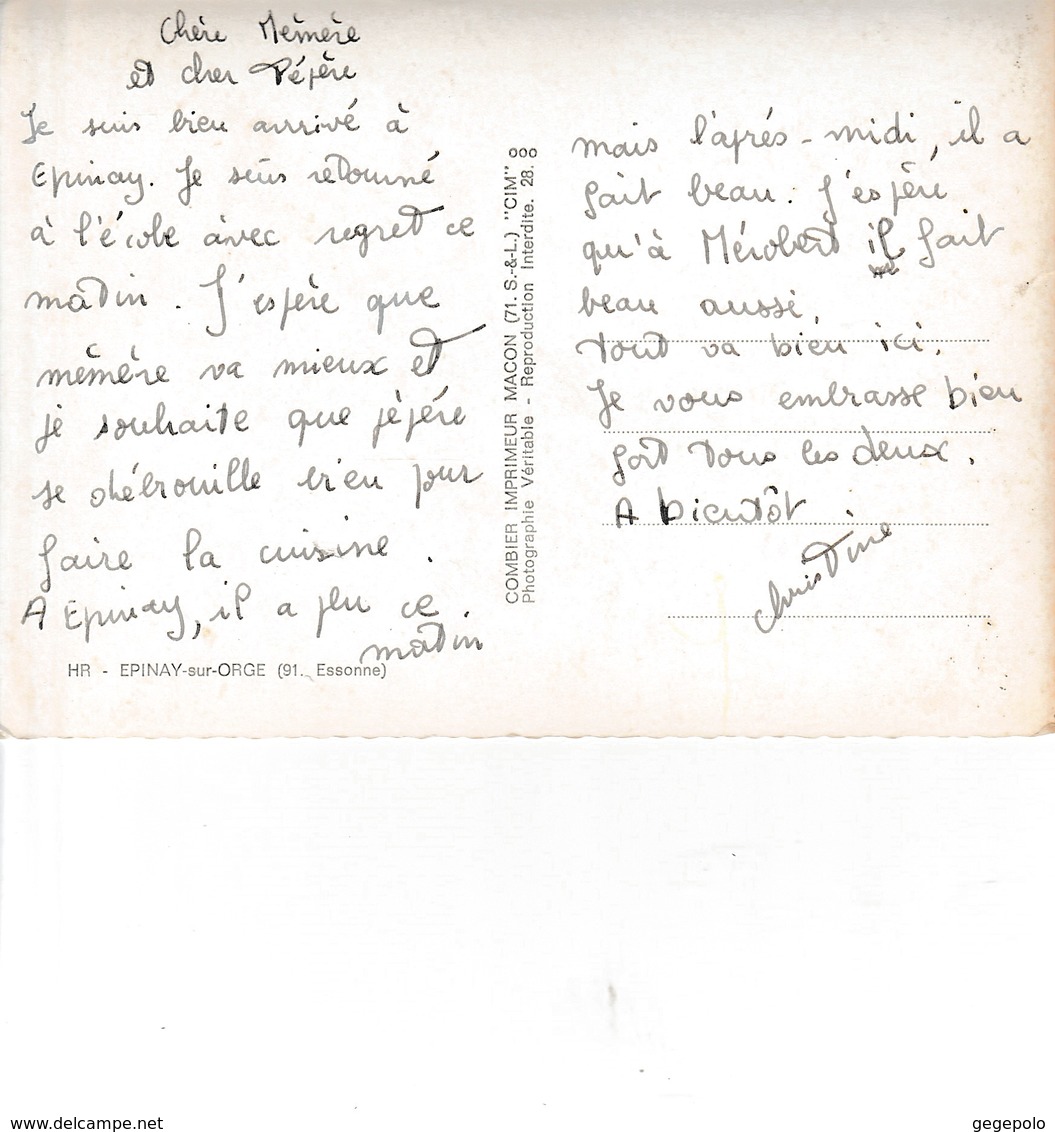 Chère Mémère
et cher Pépère
Je suis bien arrivé à
Epinay. Je suis retourné
à l'école avec regret ce
matin. J'espère que
mémère va mieux et
je souhaite que pépère
se débrouille bien pour
faire la cuisine.
A Epinay, il a plu ce
matin
HR - EPINAY-sur-ORGE (91. Essonne)
COMBIER IMPRIMEUR MACON (71. S.-&-L.) "CIM"
Photographie Véritable - Reproduction Interdite. 28.
mais l'aprés-midi, il a
fait beau. J'espére
qu'à Mérobert il fait
beau aussi.
Tout va bien ici.
Je vous embrasse bien
fort tous les deux.
A bientôt
Christine
www.delcampe.net
gegepolo